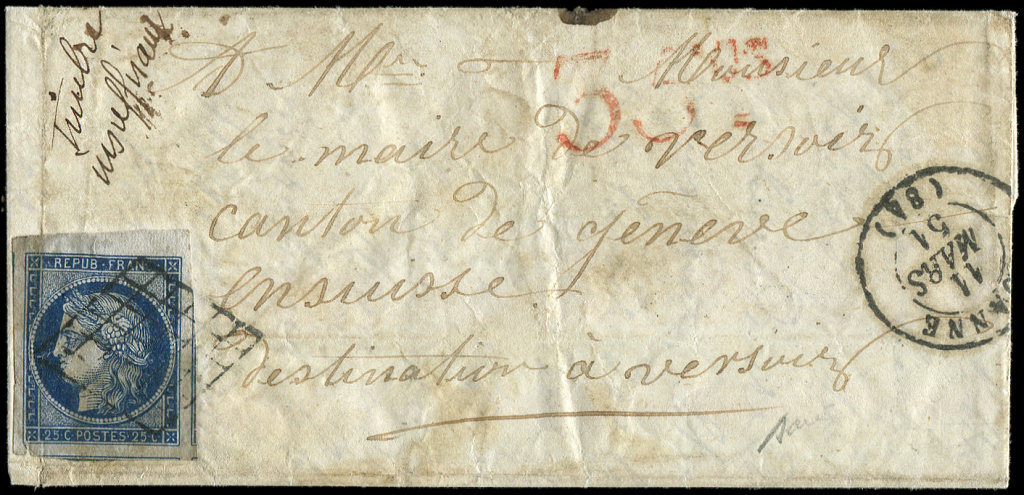 Timbre
insuffisant
A Mr Monsieur
le maire de versoix
canton de génève
en suisse
destination à versoix
REPUB · FRANC
25 C · POSTES · 25 C
11
MARS
51
(84)